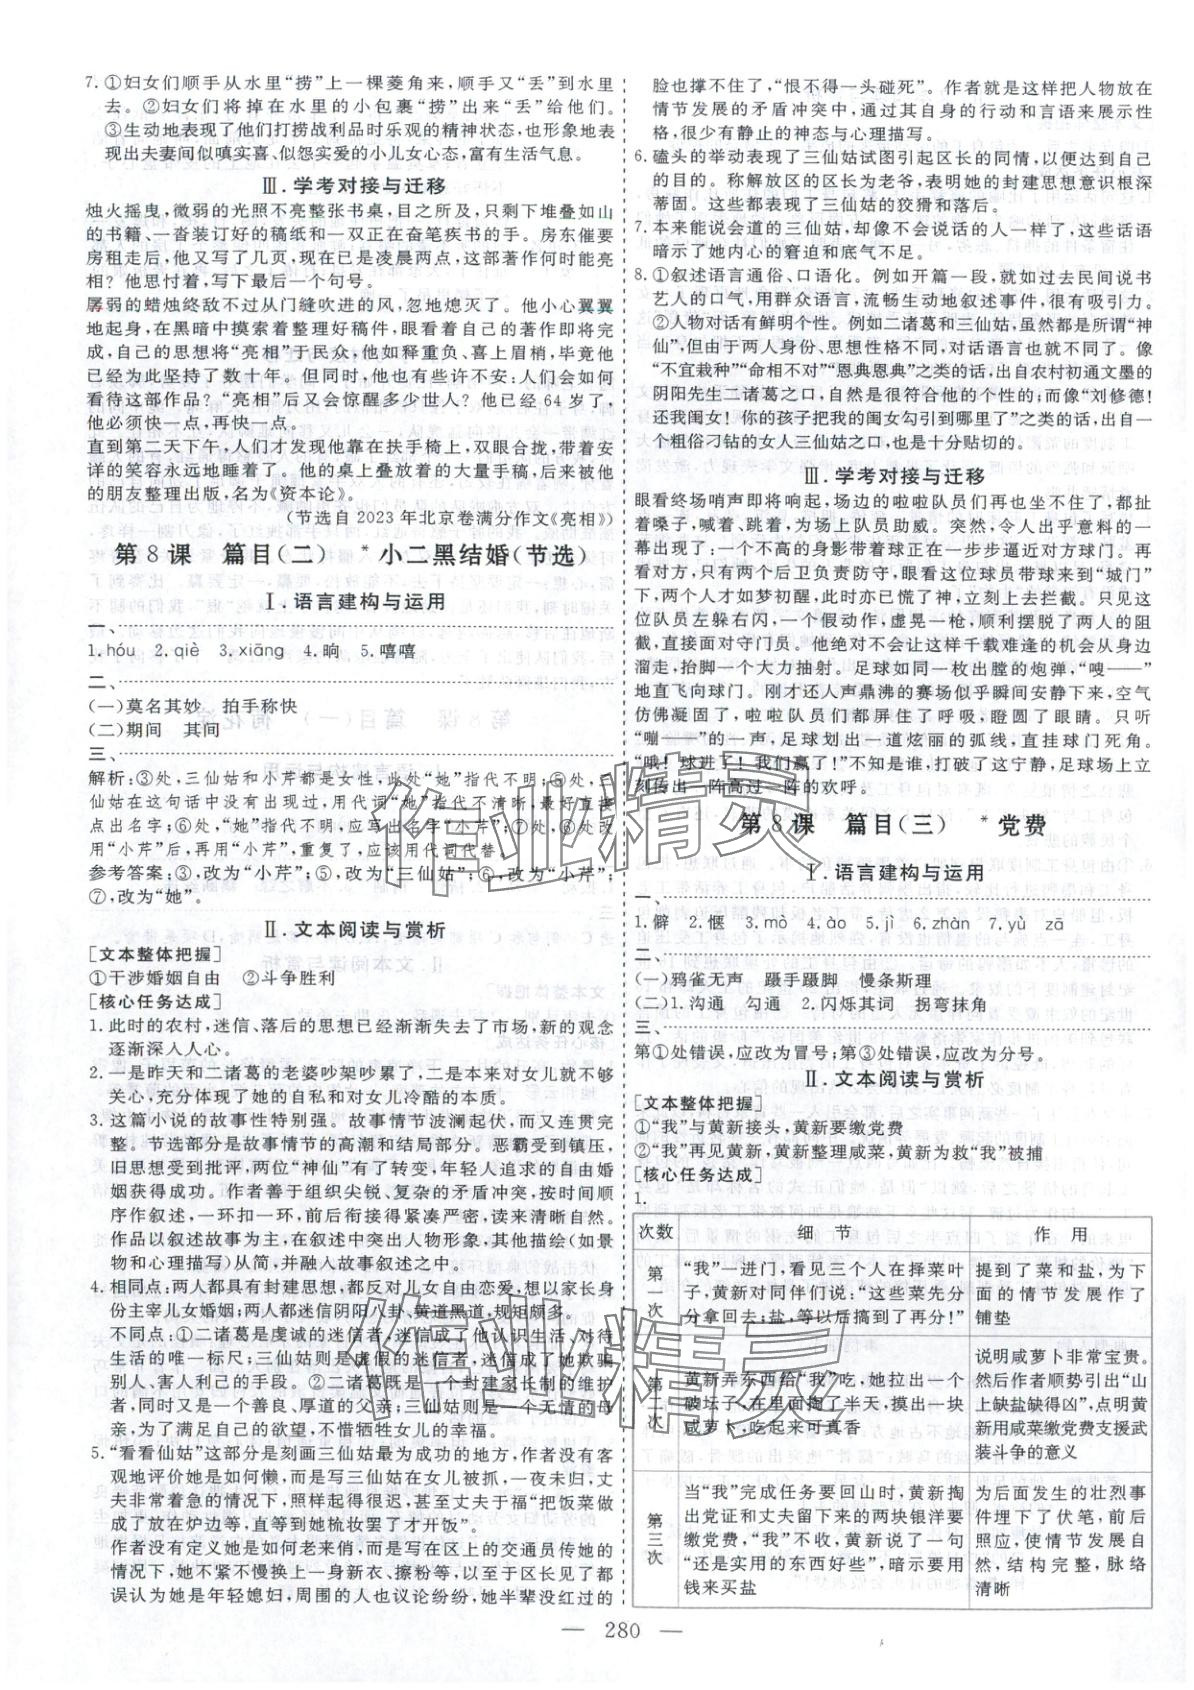 7. ①妇女们顺手从水里“捞”上一棵菱角来，顺手又“丢”到水里
去。②妇女们将掉在水里的小包裹“捞”出来“丢”给他们。
③生动地表现了他们打捞战利品时乐观的精神状态，也形象地表
现出夫妻间似嗔实喜、似怨实爱的小儿女心态，富有生活气息。
Ⅲ．学考对接与迁移
烛火摇曳，微弱的光照不亮整张书桌，目之所及，只剩下堆叠如山
的书籍、一沓装订好的稿纸和一双正在奋笔疾书的手。房东催要
房租走后，他又写了几页，现在已是凌晨两点，这部著作何时能亮
相？他思忖着，写下最后一个句号。
孱弱的蜡烛终敌不过从门缝吹进的风，忽地熄灭了。他小心翼翼
地起身，在黑暗中摸索着整理好稿件，眼看着自己的著作即将完
成，自己的思想将“亮相”于民众，他如释重负、喜上眉梢，毕竟他
已经为此坚持了数十年。但同时，他也有些许不安：人们会如何
看待这部作品？“亮相”后又会惊醒多少世人？他已经 64 岁了，
他必须快一点，再快一点。
直到第二天下午，人们才发现他靠在扶手椅上，双眼合拢，带着安
详的笑容永远地睡着了。他的桌上叠放着的大量手稿，后来被他
的朋友整理出版，名为《资本论》。
（节选自 2023 年北京卷满分作文《亮相》）
第 8 课　篇目（二）　*小二黑结婚（节选）
Ⅰ．语言建构与运用
一、
1. hóu　2. qiè　3. xiāng　4. 晌　5. 嘻嘻
二、
（一）莫名其妙　拍手称快
（二）期间　其间
三、
解析：③处，三仙姑和小芹都是女性，此处“她”指代不明；⑤处，三
仙姑在这句话中没有出现过，用代词“她”指代不清晰，最好直接
点出名字；⑥处，“她”指代不明，应写出名字“小芹”；⑦处，⑥处改
用“小芹”后，再用“小芹”，重复了，应该用代词代替。
参考答案：③，改为“小芹”；⑤，改为“三仙姑”；⑥，改为“小芹”；
⑦，改为“她”。
Ⅱ．文本阅读与赏析
[文本整体把握]
①干涉婚姻自由　②斗争胜利
[核心任务达成]
1. 此时的农村，迷信、落后的思想已经渐渐失去了市场，新的观念
逐渐深入人心。
2. 一是昨天和二诸葛的老婆吵架吵累了，二是本来对女儿就不够
关心，充分体现了她的自私和对女儿冷酷的本质。
3. 这篇小说的故事性特别强。故事情节波澜起伏，而又连贯完
整。节选部分是故事情节的高潮和结局部分。恶霸受到镇压，
旧思想受到批评，两位“神仙”有了转变，年轻人追求的自由婚
姻获得成功。作者善于组织尖锐、复杂的矛盾冲突，按时间顺
序作叙述，一环扣一环，前后衔接得紧凑严密，读来清晰自然。
作品以叙述故事为主，在叙述中突出人物形象，其他描绘（如景
物和心理描写）很简洁，并融入故事叙述之中。
4. 相同点：两人都具有封建思想，都反对儿女自由恋爱，想以家长身
份主宰儿女婚姻；两人都迷信阴阳八卦、黄道黑道，规矩颇多。
不同点：①二诸葛是虔诚的迷信者，迷信成了他认识生活、对待
生活的唯一标尺；三仙姑则是虚假的迷信者，迷信成了她欺骗
别人、害人利己的手段。②二诸葛既是一个封建家长制的维护
者，同时又是一个善良、厚道的父亲；三仙姑则是一个无情的母
亲，为了满足自己的欲望，不惜牺牲女儿的幸福。
5. “看看仙姑”这部分是刻画三仙姑最为成功的地方，作者没有客
观地评价她是如何懒，而是写三仙姑在女儿被抓，一夜未归，丈
夫非常着急的情况下，照样起得很迟，甚至丈夫于福“把饭菜做
成了放在炉边等，直等到她梳妆罢了才开饭”。
作者没有定义她是如何老来俏，而是写在区上的交通员传她的
情况下，她不紧不慢换上一身新衣、擦粉等，以至于区长见了都
误认为她是年轻媳妇，周围的人也议论纷纷，她半辈没红过的
脸也撑不住了，“恨不得一头碰死”。作者就是这样把人物放在
情节发展的矛盾冲突中，通过其自身的行动和言语来展示性
格，很少有静止的神态与心理描写。
6. 磕头的举动表现了三仙姑试图引起区长的同情，以便达到自己
的目的。称解放区的区长为老爷，表明她的封建思想意识根深
蒂固。这些都表现了三仙姑的狡猾和落后。
7. 本来能说会道的三仙姑，却像不会说话的人一样了，这些话语
暗示了她内心的窘迫和底气不足。
8. ①叙述语言通俗、口语化。例如开篇一段，就如过去民间说书
艺人的口气，用群众语言，流畅生动地叙述事件，很有吸引力。
②人物对话有鲜明个性。例如二诸葛和三仙姑，虽然都是所谓“神
仙”，但由于两人身份、思想性格不同，对话语言也就不同了。像
“不宜栽种”“命相不对”“恩典恩典”之类的话，出自农村初通文墨的
阴阳先生二诸葛之口，自然是很符合他的个性的；而像“刘修德！
还我闺女！你的孩子把我的闺女勾引到哪里了”之类的话，出自一
个粗俗刁钻的女人三仙姑之口，也是十分贴切的。
Ⅲ．学考对接与迁移
眼看终场哨声即将响起，场边的啦啦队员们再也坐不住了，都扯
着嗓子，喊着、跳着，为主场球队呐喊助威。突然，令人出乎意料的一
幕出现了：一个不高的身影带着球正在一步步逼近对方球门。再
看对方，只有两个后卫负责防守，眼看这位球员带球来到“城门”
下，两个人才如梦初醒，此时亦已慌了神，立刻冲上拦截。只见这
位队员左躲右闪，一个假动作，虚晃一枪，顺利摆脱了两人的阻
截，直接面对守门员。他绝对不会让这样千载难逢的机会从身边
溜走，抬脚一个大力抽射。足球如同一枚出膛的炮弹，“嗖——”
地直飞向球门。刚才还人声鼎沸的赛场似乎瞬间安静下来，空气
仿佛凝固了，啦啦队员们都屏住了呼吸，瞪圆了眼睛。只听
“嘣——”的一声，足球划出一道炫丽的弧线，直挂球门死角。
“哦！球进了！我们赢了！”不知是谁，打破了这宁静，球场上立
刻传出一阵高过一阵的欢呼。
第 8 课　篇目（三）　*党费
Ⅰ．语言建构与运用
一、
1. 解　2. 偃　3. mō　4. āo　5. jǐ　6. zhān　7. yū　zā
二、
（一）鸦雀无声　蹑手蹑脚　慢条斯理
（二）1. 沟通　勾通　2. 闪烁其词　拐弯抹角
三、
第①处错误，应改为冒号；第③处错误，应改为分号。
Ⅱ．文本阅读与赏析
[文本整体把握]
①“我”与黄新接头，黄新要缴党费
②“我”再见黄新，黄新整理咸菜，黄新为救“我”被捕
[核心任务达成]
1.
次数　细　节　作　用
第一次　“我”一进门，看见三个人在择菜叶子，黄新对同伴们说：“这些菜先分分拿回去；盐，等以后搞到了再分！”　提到了菜和盐，为下面的情节发展作了铺垫
第二次　黄新弄东西给“我”吃，她拉出一个破坛子，在里面掏了半天，摸出一块咸萝卜，吃起来可真香　说明咸萝卜非常宝贵。然后作者顺势引出“山上缺盐缺得凶”，点明黄新用咸菜缴党费支援武装斗争的意义
第三次　当“我”完成任务要回山时，黄新掏出党证和丈夫留下来的两块银洋要缴党费，“我”不收，黄新说了一句“还是实用的东西好些”，暗示要用钱来买盐　为后面发生的壮烈事件埋下了伏笔，前后照应，使情节发展自然，结构完整，脉络清晰
— 280 —
作业精灵
作业精灵